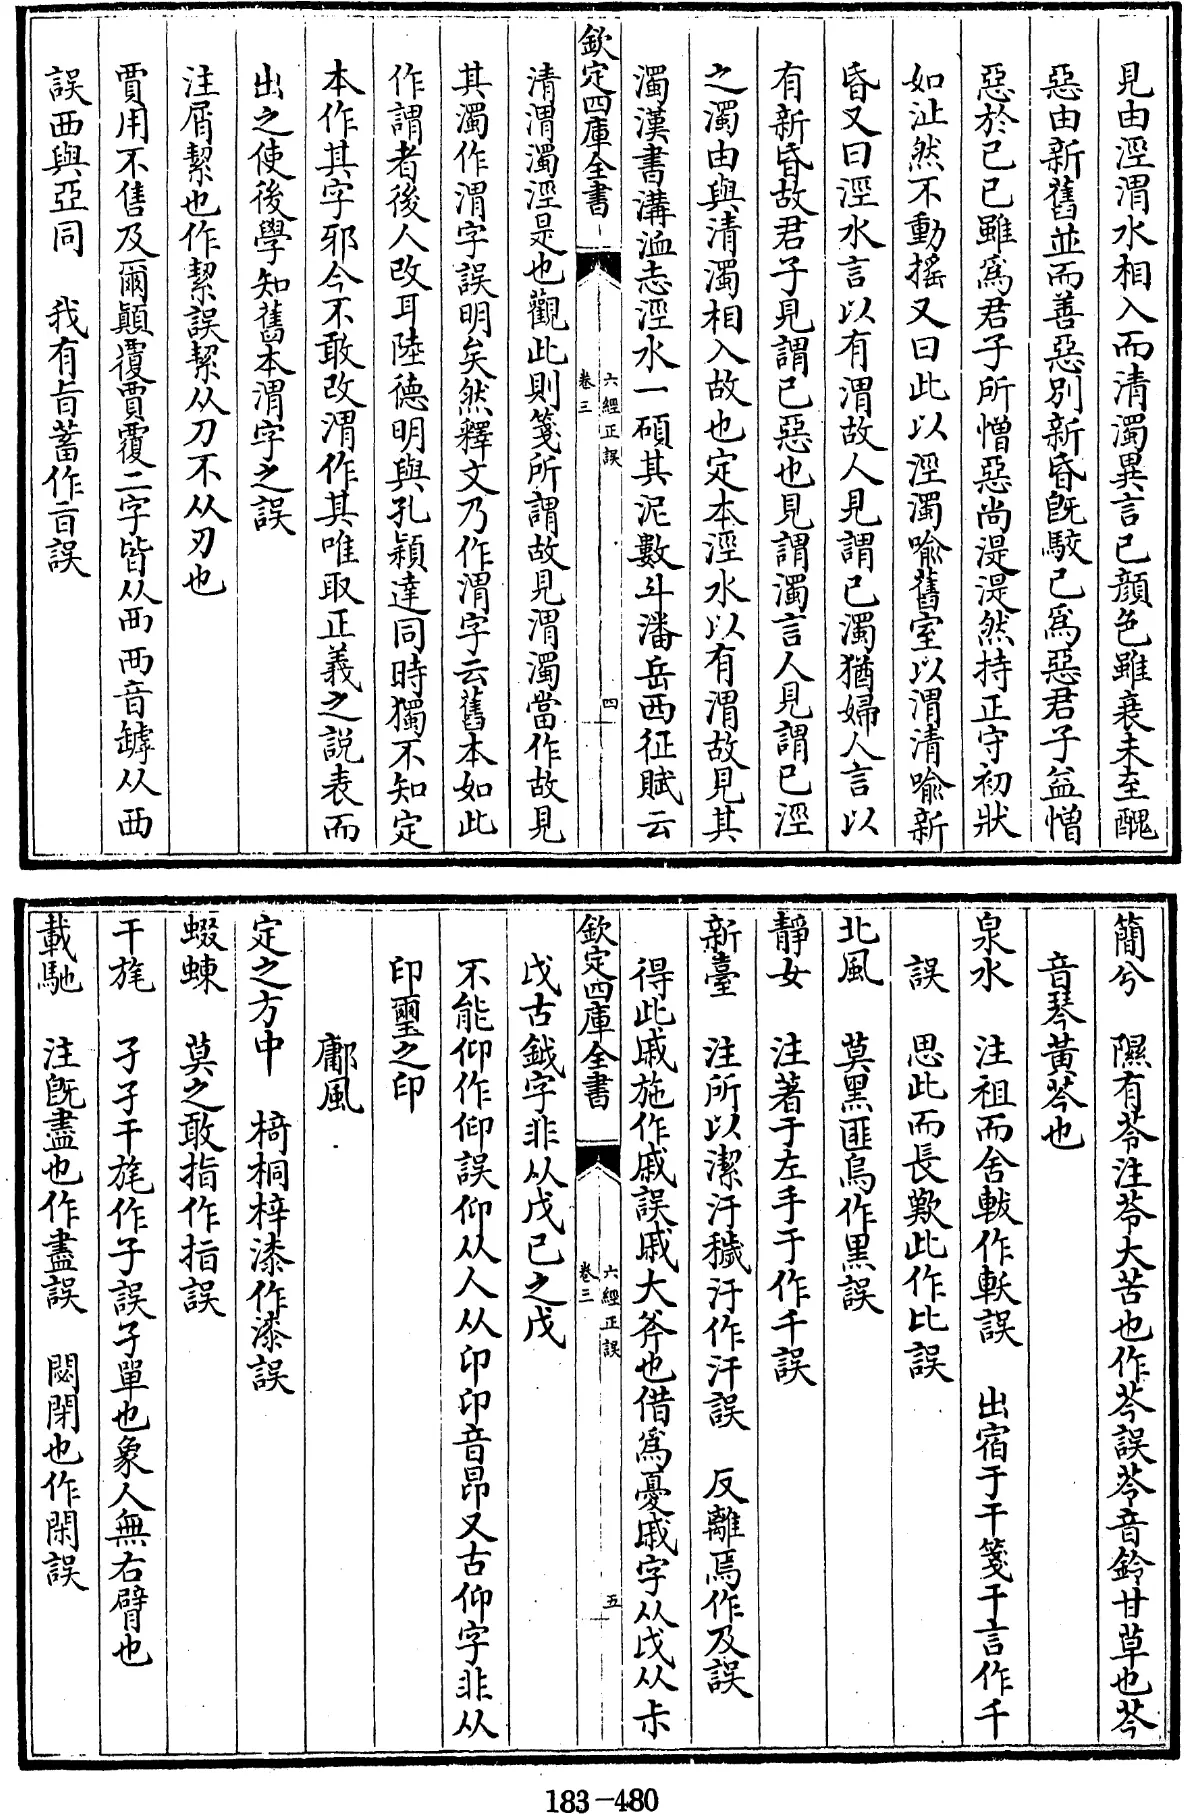 見由涇渭水相入而清濁異言已顔色雖衰未至醜
惡由新舊並而善惡別新昏旣駮已爲惡君子益憎
惡於已已雖爲君子所憎惡尚湜湜然持正守初狀
如沚然不動揺又曰此以涇濁喻舊室以渭清喻新
昏又曰涇水言以有渭故人見謂已濁猶婦人言以
有新昏故君子見謂已惡也見謂濁言人見謂已涇
之濁由與清濁相入故也定本涇水以有渭故見其
濁漢書溝洫志涇水一碩其泥數斗潘岳西征賦云
欽定四庫全書
六經正誤
卷三
四
清渭濁涇是也觀此則箋所謂故見渭濁當作故見
其濁作渭字誤明矣然釋文乃作渭字云舊本如此
作謂者後人改耳陸德明與孔穎達同時獨不知定
本作其字邪今不敢改渭作其唯取正義之説表而
出之使後學知舊本渭字之誤
注屑絜也作絜誤絜从刀不从刃也
賈用不售及爾顛覆賈覆二字皆从襾襾音罅从西
誤西與亞同 我有旨蓄作㫖誤
簡兮 隰有苓注苓大苦也作芩誤苓音鈴甘草也芩
音琴黄芩也
泉水 注祖而舍軷作軑誤 出宿于干箋干言作千
誤 思此而長歎此作比誤
北風 莫黑匪烏作黒誤
靜女 注著于左手于作千誤
新臺 注所以潔汙穢汙作汗誤 反離焉作及誤
得此戚施作戚誤戚大斧也借爲憂戚字从戉从尗
欽定四庫全書
六經正誤
卷三
五
戉古鉞字非从戊己之戊
不能仰作仰誤仰从人从卬卬音昂又古仰字非从
印璽之印
鄘風
定之方中 椅桐梓漆作漆誤
蝃蝀 莫之敢指作指誤
干旄 孑孑干旄作子誤孑單也象人無右臂也
載馳 注旣盡也作盡誤 閟閉也作閑誤
183-480